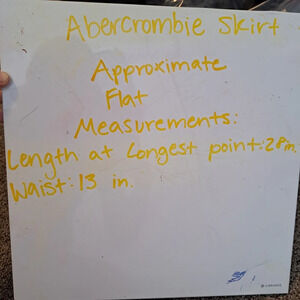 Abercrombie Skirt
Approximate
Flat
Measurements:
Length at Longest point: 28 in.
Waist: 13 in.